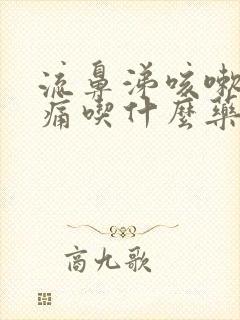 流鼻涕咳嗽
痛喫什麼藥
商九歌